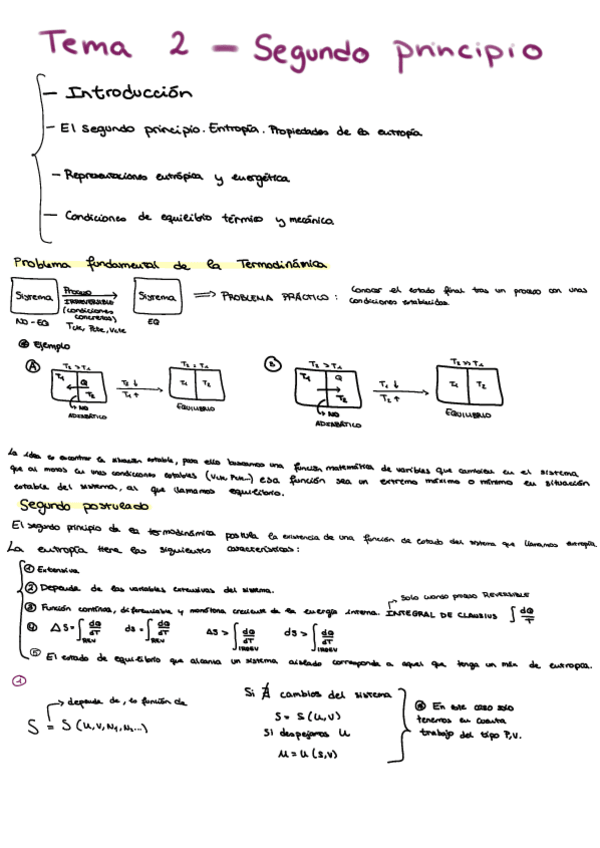 Tema 2 – Segundo principio
– Introducción
– El segundo principio. Entropía. Propiedades de la entropía
– Representaciones entrópica y energética
– Condiciones de equilibrio térmico y mecánico
Problema fundamental de la Termodinámica
Sistema Proceso IRREVERSIBLE (condiciones concretas) Sistema ⇒ PROBLEMA PRÁCTICO: Conocer el estado final tras un proceso con unas condiciones establecidas.
NO-EQ Tcte, Pcte, Vcte EQ
Ejemplo
A T2 > T1 T1 Q T2 NO ADIABÁTICO T2 ↓ T1 ↑ T2 = T1 T1 T2 EQUILIBRIO
B T2 > T1 T1 Q T2 NO ADIABÁTICO T1 ↓ T2 ↑ T2 >> T1 T1 T2 EQUILIBRIO
La idea es encontrar la situación estable, para ello buscamos una función matemática de varibles que cambien en el sistema
que al menos en unas condiciones estables (Vcte, Pcte...) esa función sea un extremo máximo o mínimo en situación
estable del sistema, al que llamamos equilibrio.
Segundo postulado
El segundo principio de la termodinámica postula la existencia de una función de estado del sistema que llamamos entropía.
La entropía tiene las siguientes características:
① Extensiva
② Depende de las variables extensivas del sistema.
Solo cuando proceso REVERSIBLE
③ Función continua, diferenciable y monótona creciente de la energía interna. INTEGRAL DE CLAUSIUS ∫ dQ/T
④ ΔS = ∫REV dQ/dT dS = ∫REV dQ/dT ΔS > ∫IRREV dQ/dT dS > ∫IRREV dQ/dT
⑤ El estado de equilibrio que alcanza un sistema aislado corresponde a aquel que tenga un máx de entropía.
①
depende de, es función de
S = S (U, V, N1, N2...)
Si ∄ cambios del sistema
S = S (U, V)
Si despejamos U
U = U (S, V)
En este caso solo
tenemos en cuenta
trabajo del tipo P, V.